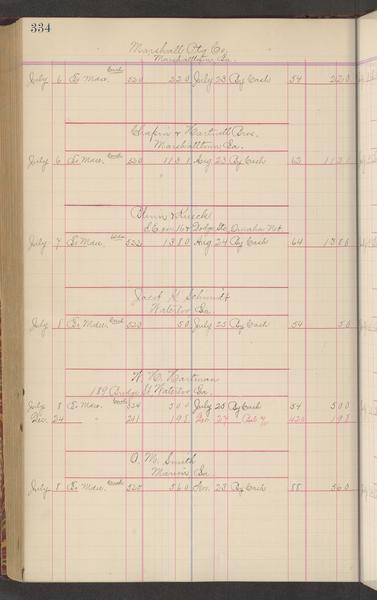 334
Marshall Ptg Co
Marshalltown Ia.
July 6 To Mdse. 520 2 2 0 July 23 By Cash 54 2 2 0
Chapin & Hartwell Bros.
Marshalltown Ia.
July 6 To Mdse. 520 11 3 1 Aug 23 By Cash 62 11 3 1
S.E. cor 16 & Dodge Sts Omaha Neb.
July 7 To Mdse. 522 1 3 8 0 Aug 24 By Cash 64 1 3 8 0
Jacob H Schmidt
Waterloo Ia
July 8 To Mdse. 523 5 0 July 25 By Cash 54 5 0
W. H. Hartman
189 Bridge St Waterloo Ia
July 8 To Mdse. 524 5 0 0 July 25 By Cash 54 5 0 0
Dec. 24 " 211 1 9 8 Dec. 24 420 1 9 8
O. M. Smith
Marion Ia.
July 8 To Mdse. 525 5 6 0 Nov. 23 By Cash 88 5 6 0